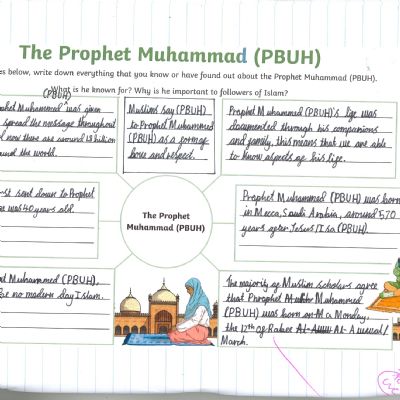 The Prophet Muhammad (PBUH)
es below, write down everything that you know or have found out about the Prophet Muhammad (PBUH).
What is he known for? Why is he important to followers of Islam?
(PBUH)
phet Muhammad was given
spread the message throughout
d now there are around 1.8 billion
ound the world.
Muslims say (PBUH)
to Prophet Muhammad
(PBUH) as a form of
love and respect.
Prophet Muhammad (PBUH)'s life was
documented through his companions
and family, this means that we are able
to know aspects of his life.
rst sent down to Prophet
e was 40 years old.
The Prophet
Muhammad (PBUH)
Prophet Muhammad (PBUH) was born
in Mecca, Saudi Arabia, around 570
years after Jesus/Isa (PBUH).
et Muhammad (PBUH),
be no modern day Islam.
The majority of Muslim scholars agree
that Prophet Muhammad
(PBUH) was born on a Monday,
the 12th of Rabee Al-Awwal/
March.